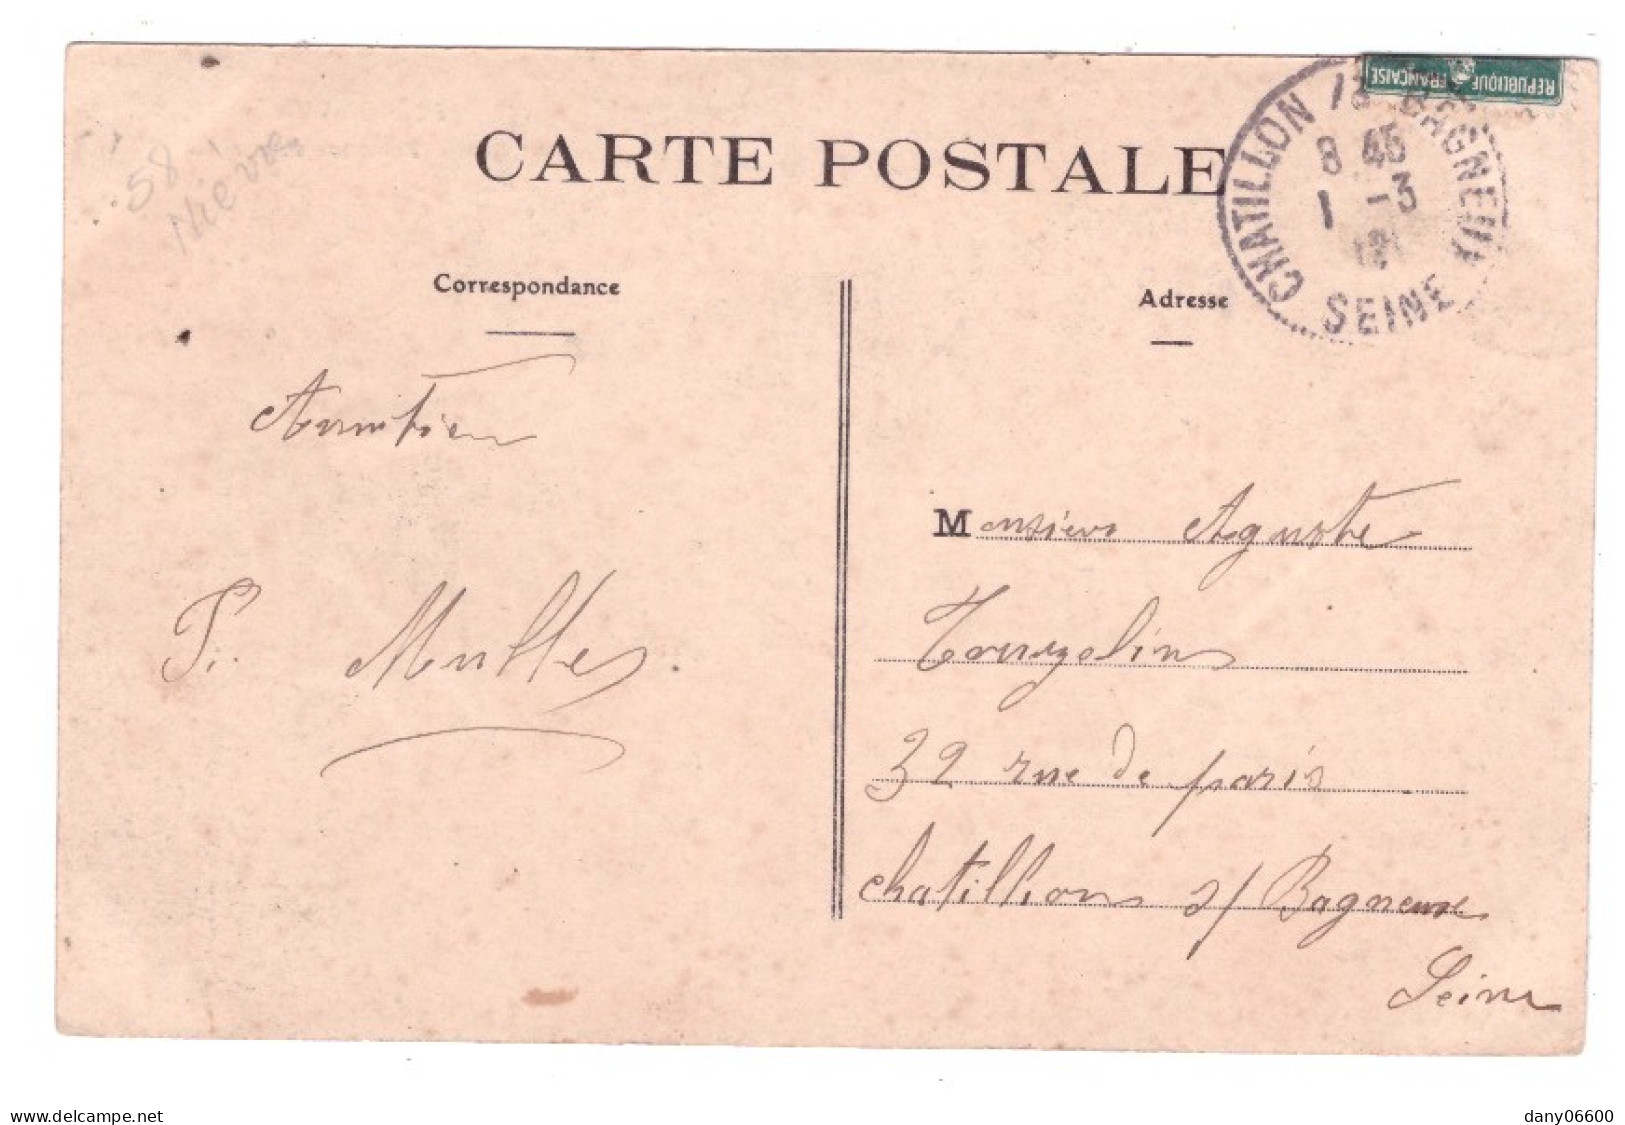 REPUBLIQUE FRANÇAISE
CARTE POSTALE
CHATILLON BAGNEUX
8 45
1 -3
SEINE
58
Nièvre
Correspondance
Adresse
Monsieur Aguste
P. Mulles.
32 rue de paris
chatillons s/ Bagneux
Seine
www.delcampe.net
dany06600